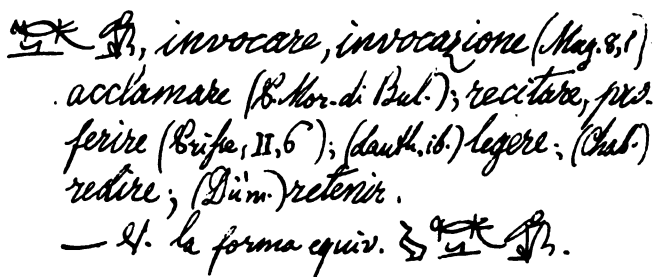 , invocare, invocazione (Mag. 8, 1)
acclamare (P. Mor. di Bul.); recitare, pro-
ferire (Prisse, II, 6); (Lauth, ib.) legere; (Chab.)
redire; (Düm.) retenir.
— V. la forma equiv.